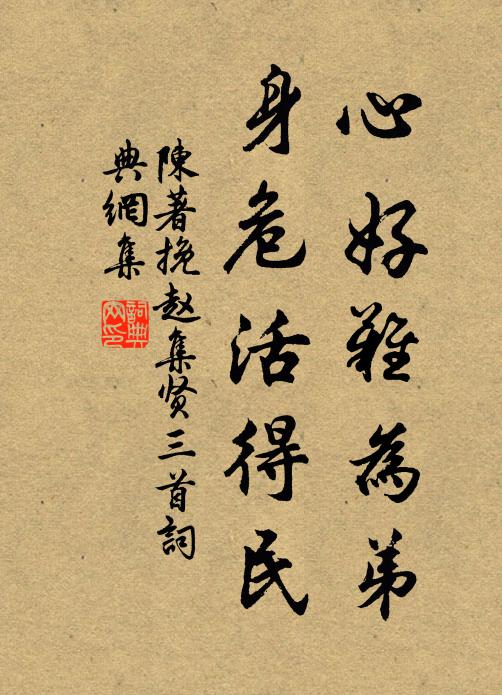 心好難為弟
身危活得民
陳著挽赵集贤三首詞
典網集
詞典網印